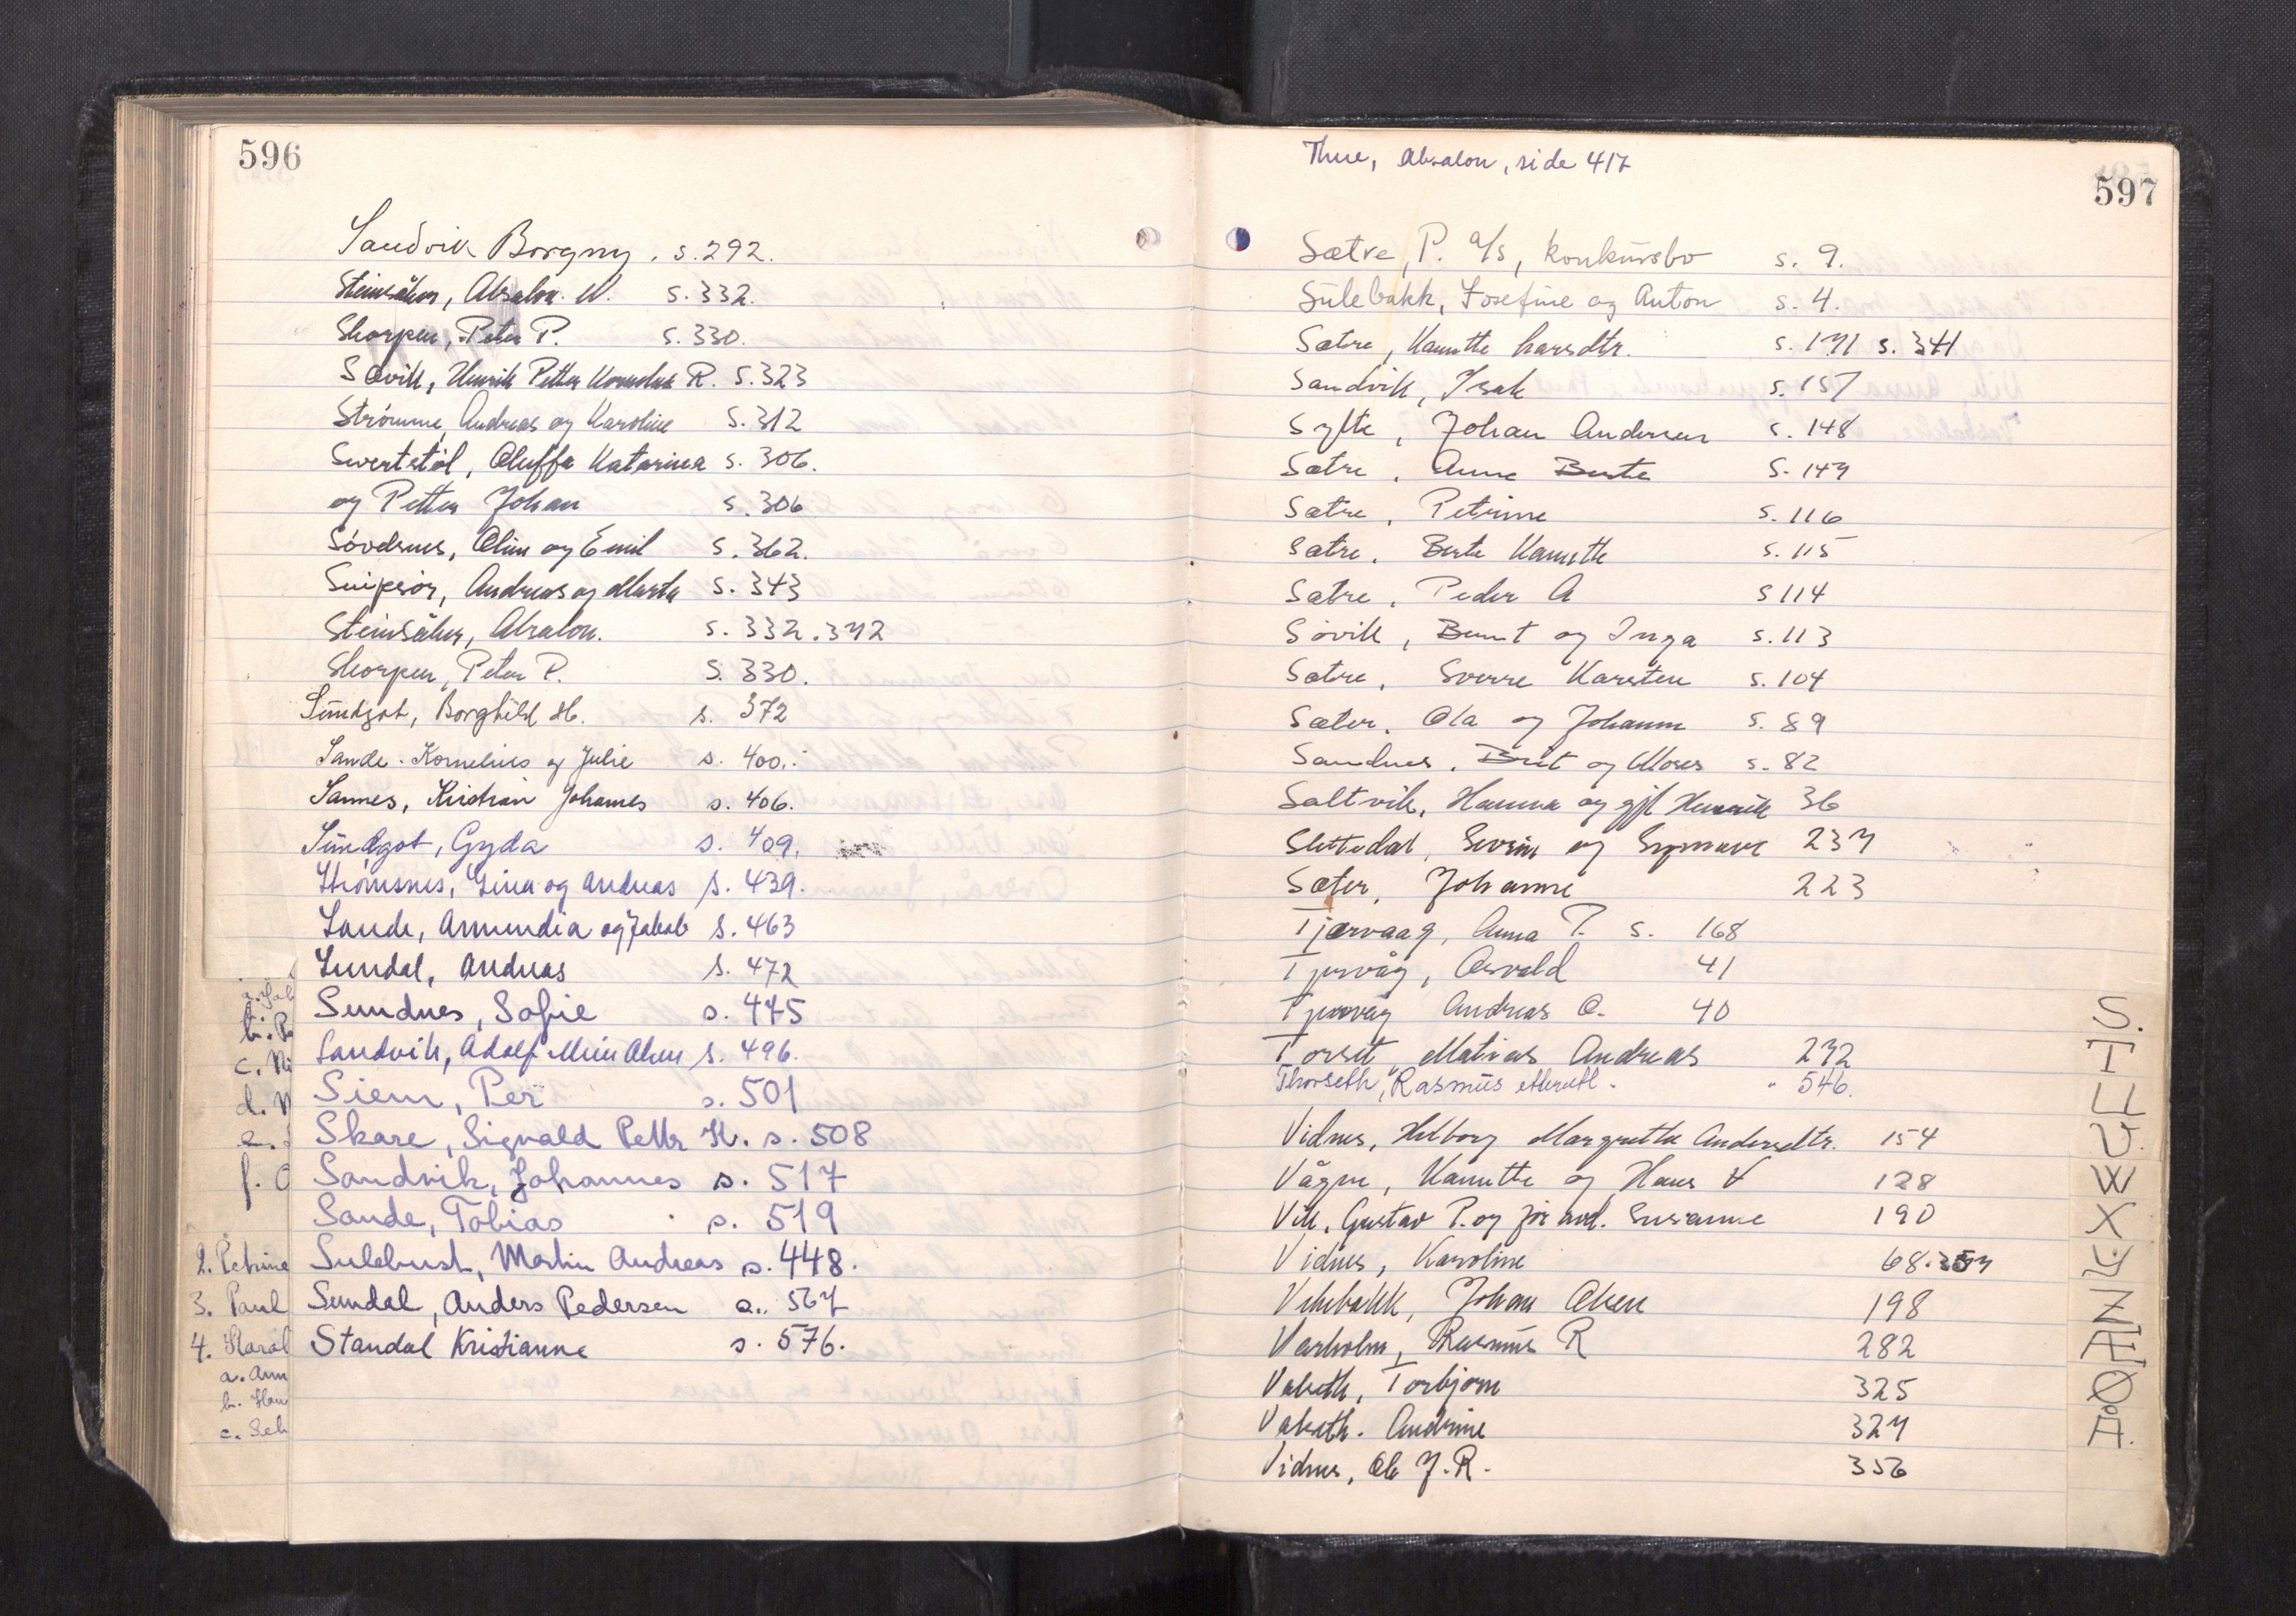 596
Sandvik Borgny. s. 292.
Steinsåker, Absalon N. s. 332.
Skorpen, Peter P. s. 330.
Søvik, Henrik Petter Kornelius R. s. 323
Strømme, Andreas og Karoline s. 312
Svertstøl, Oluffa Katarina s. 306.
og Petter Johan s. 306
Søvdsnes, Oline og Emil s. 362.
Snipsøyr, Andreas og Marta s. 343
Steinsåker, Absalon. s. 332.342
Skorpen, Peter P. s. 330.
Sundgot, Borghild H. s. 372
Sande. Kornelius og Julie s. 400.
Sannes, Kristian Johannes s. 406.
Sundgot, Gyda s. 409.
Strømsnes, Lina og Andreas s. 439.
Sande, Amundia og Jakob s. 463
Sundal, Andreas s. 472
Sundnes, Sofie s. 475
Sandvik, Adolf s. 496.
Siem, Per s. 501
Skare, Sigvald Petter K. s. 508
Sandvik, Johannes s. 517
Sande, Tobias s. 519
2. Petrine
Sulebust, Martin Andreas s. 448.
3. Paul
Sundal, Anders Pedersen s. 567
4. Karol
Standal Kristianne s. 576.
a. Ann
b. Han
c. Seb
Thue, Absalon, side 417
597
Sætre, P. A/S, konkursbo s. 9.
Sulebakk, Josefine og Anton s. 4.
Sætre, Kanutte Larsdtr. s. 171 s. 341
Sandvik, Isak s. 157
Sylte, Johan Andersen s. 148
Sætre, Anne Berte s. 147
Sætre, Petrine s. 116
Sætre, Berte Kanutte s. 115
Sætre, Peder A s 114
Søvik, Bernt og Inga s. 113
Sætre, Sverre Karsten s. 104
Sæter, Ola og Johanne s. 89
Sandnes, Brit og Moses s. 82
Saltvik, Hanna og gjl Henrik 36
Slettedal, Severin og Synnøve 237
Sæter, Johanne 223
Tjærvaag, Anna P. s. 168
Tjervåg, Osvald 41
Tjervåg Andreas O. 40
Torset, Matias Andreas 232
Thorseth, Rasmus " 546.
Vidnes, Helborg Margrethe Andersdtr. 154
Vågnes, Kanutte og Hans V 128
Vik, Gustav P. og før avd. Susanne 190
Vidnes, Karoline 68.357
Velsbakk, Johan Olsen 198
Varholm, Rasmus R 282
Valseth, Torbjørn 325
Valseth. Andrine 327
Vidnes, Ole J. R. 356
A.Ø.Æ.N.X.E.U.T.S.